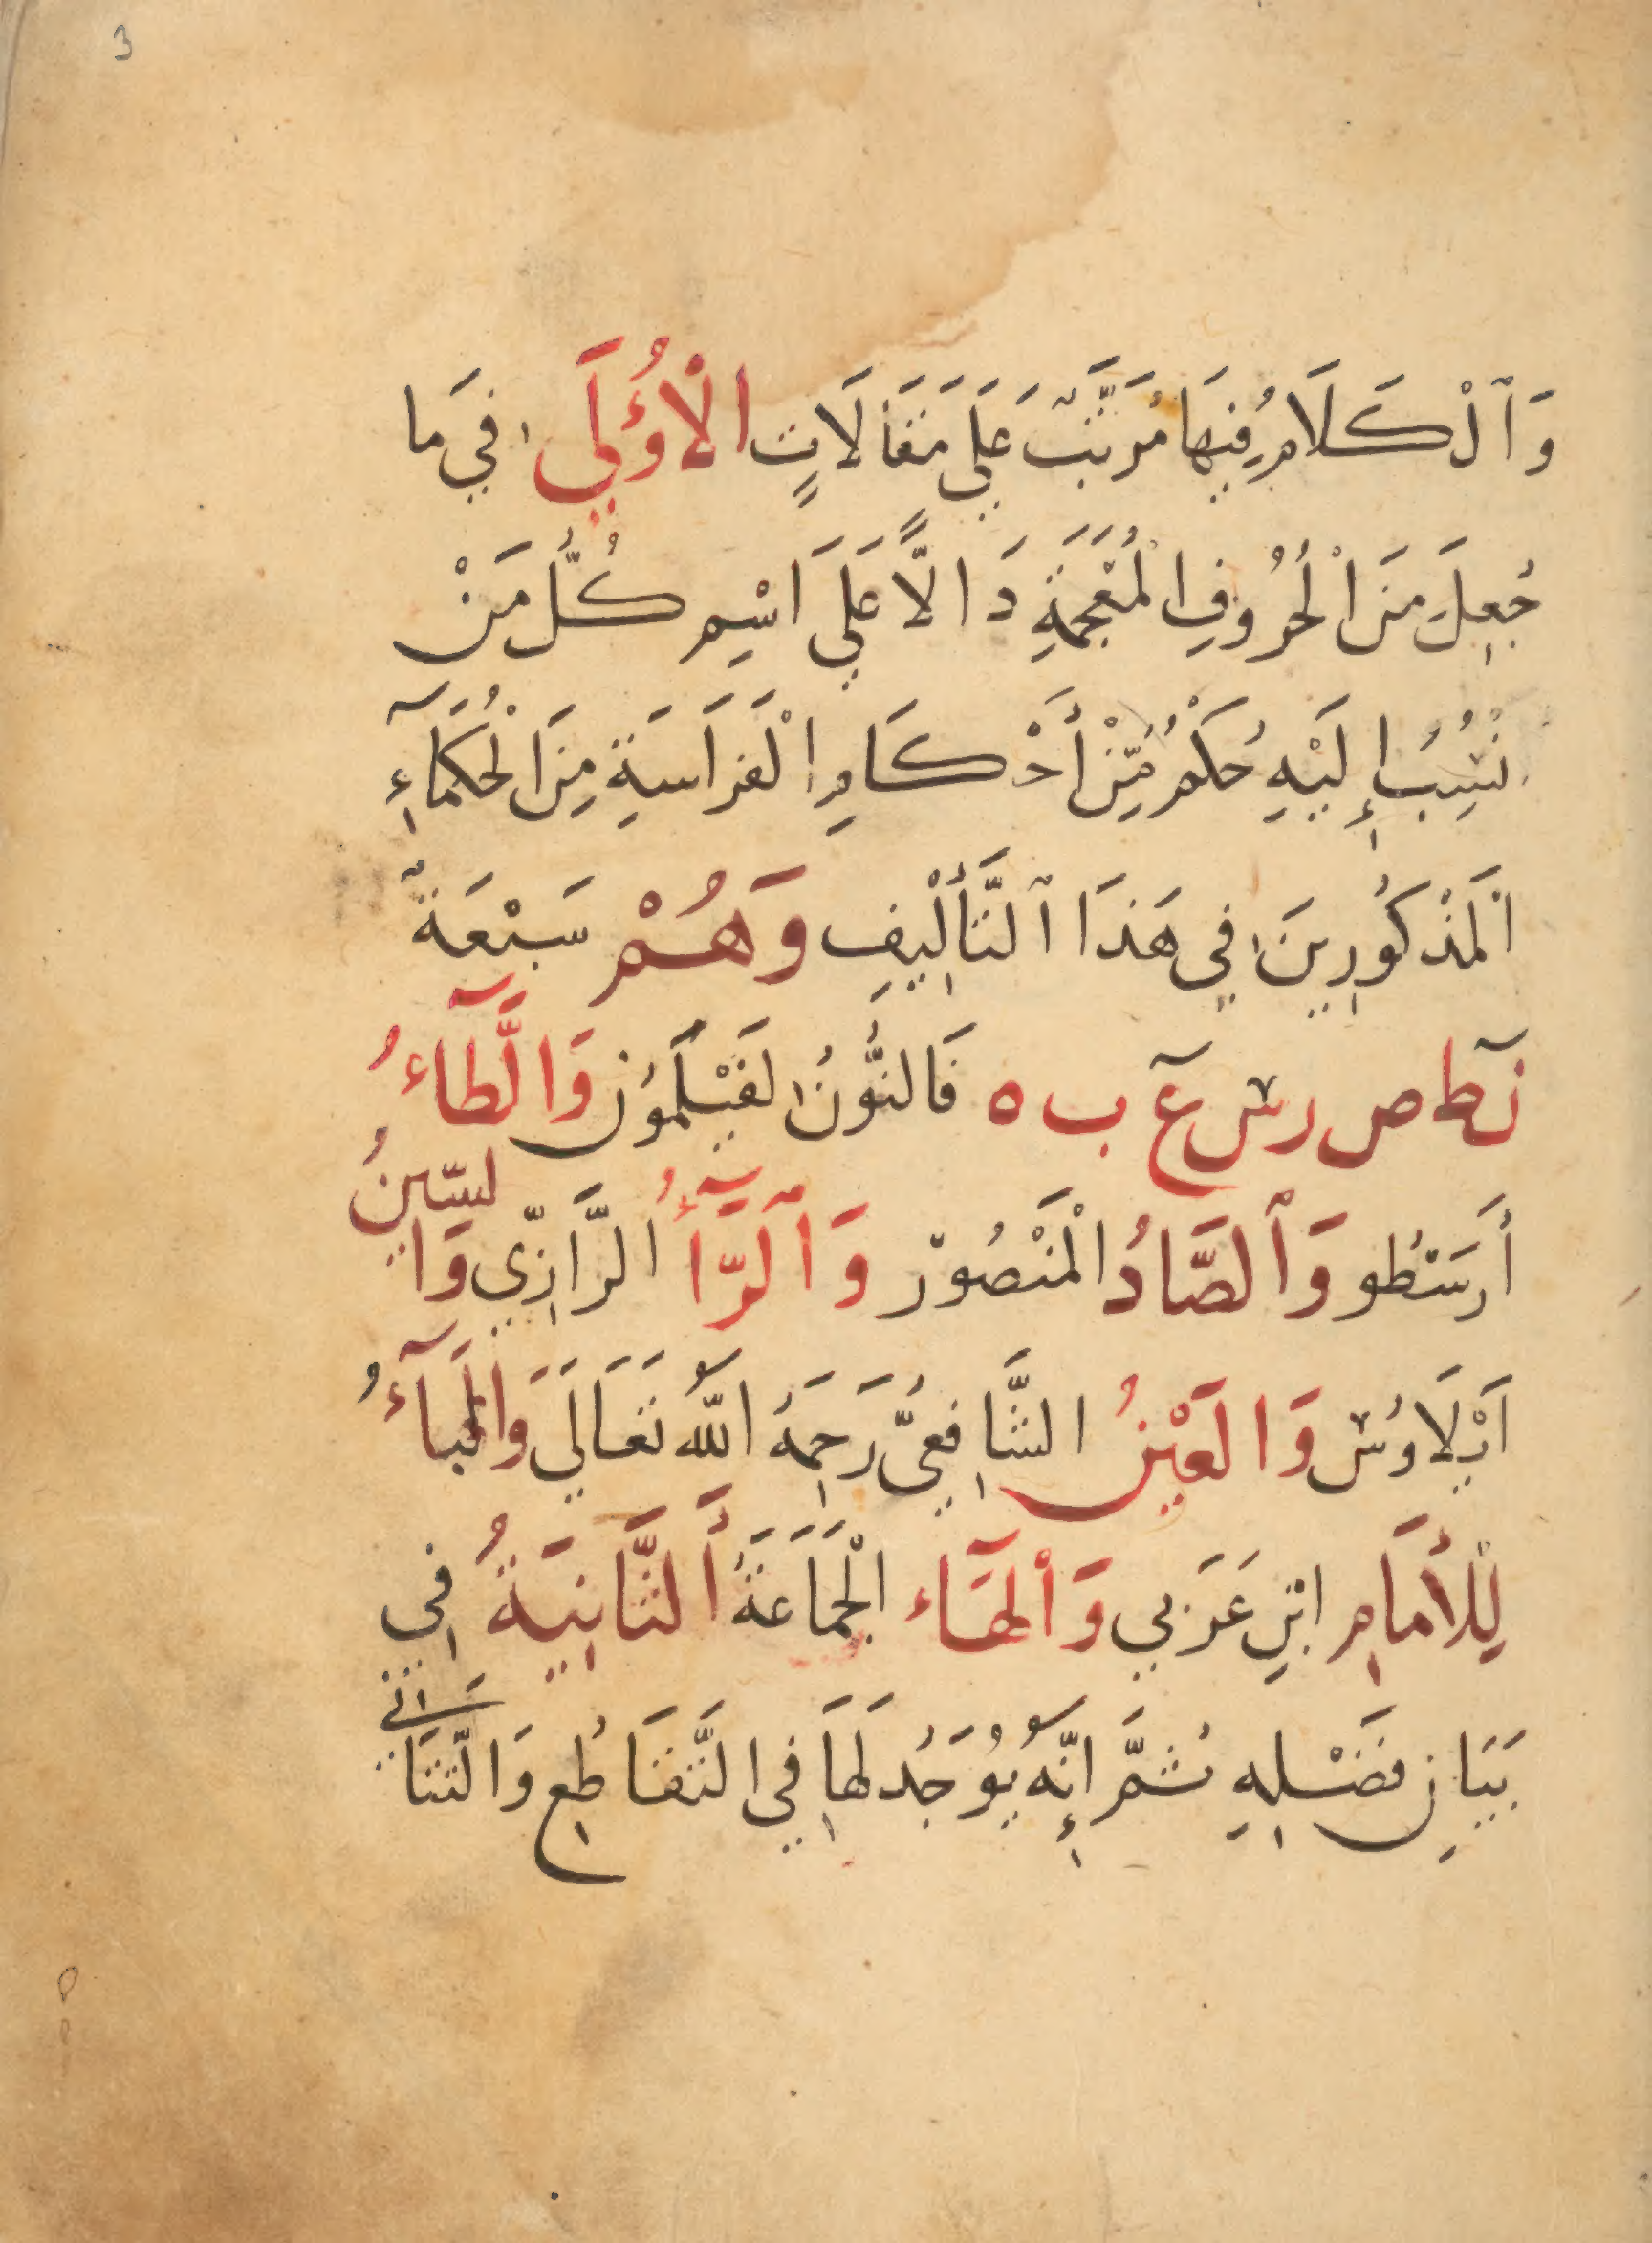 3
وَٱلْكَلَامُ فِيهَا مُرَتَّبٌ عَلَى مَقَالَاتٍ الْأُوْلَى فِيمَا
جُعِلَ مِنَ الْحُرُوفِ الْمُعْجَمَةِ دَالًّا عَلَى اسْمِ كُلُّ مَنْ
نُسِبُ إِلَيْهِ حُكْمٌ مِّنْ أَحْكَامِ الْفَرَاسَةِ مِنَ الْحُكَمَآءِ
الْمَذْكُورِينَ فِي هَذَا ٱلتَّأْلِيفِ وَهُمْ سَبْعَةٌ
ن ط ص ر س ع ب ه فَالنُّونُ لفَيْلَمُون وَالطَّآءُ
أَرَسْطُو وَٱلصَّادُ الْمَنْصُورْ وَٱلرَّآءُ الرَّازِيّ وَالسِّينُ
اَيْلَاوُس وَالعَيْنُ الشَّافِعِيَّ رَحِمَهُ اللّٰه تَعَالَى وَالْبَآءُ
لِلْأمَامِ ابْنِ عَرَبِي وَٱلْهَآء الْجَمَاعَةَ أَلثَّانِيَةُ فِي
بَيَانِ فَضْلِهِ ثُمَّ إِنَّهُ يُوجَدُ لَهَا فِي التَّقَاطُعِ وَالتَّنَاسَانِي